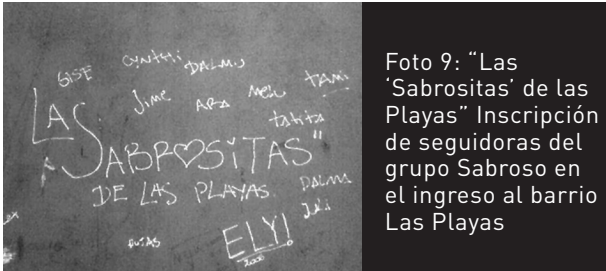 GISE CYNTHI DALMU
Jime ARA MELU TAMI
tatita
LAS
SABROSITAS"
DE LAS PLAYAS
DALMA
Juli
ELY!
2000
Foto 9: “Las
‘Sabrositas’ de las
Playas” Inscripción
de seguidoras del
grupo Sabroso en
el ingreso al barrio
Las Playas